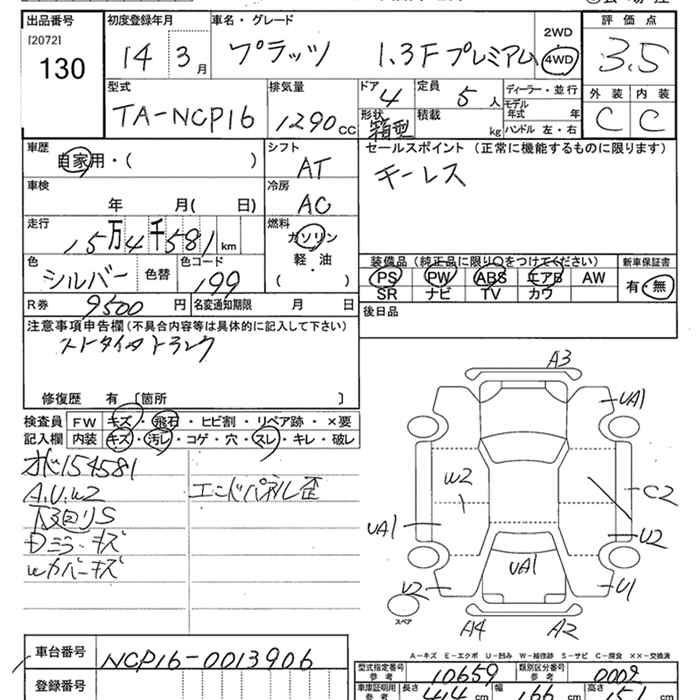 出品番号
[2072]
130
初度登録年月
14年3月
車名・グレード
プラッツ 1.3F プレミアム
2WD
4WD
評価点
3.5
型式
TA-NCP16
排気量
1290cc
ドア
4
定員
5人
形状
箱型
積載
kg
ディーラー・並行
モデル
年式 年
ハンドル 左・右
外装 内装
C C
車歴
自家用・( )
シフト
AT
セールスポイント (正常に機能するものに限ります)
キーレス
車検
年 月( 日)
冷房
AC
走行
15万4千581km
燃料
ガソリン
軽・油
( )
色
シルバー
色替
色コード
199
装備品(純正品に限り○をつけてください)
新車保証書
PS PW ABS エアB AW
SR ナビ TV カワ
有・無
R券
9500円
名変通知期限 月 日
後日品
注意事項申告欄(不具合内容等は具体的に記入して下さい)
修復歴 有 〔箇所 〕
検査員
記入欄
FW キズ・飛石・ヒビ割・リペア跡・×要
内装 キズ・汚レ・コゲ・穴・スレ・キレ・破レ
154581
A.U.W2
エンドパネル歪
下廻りS
キズ
カバーキズ
A3
UA1
W2
C2
UA1
U2
UA1
U2
U1
A4
A2
スペア
A-キズ E-エクボ U-凹み W-補修跡 S-サビ C-腐食 XX-交換済
車台番号
NCP16-0013906
登録番号
型式指定番号
参考
10659
類別区分番号
参考
0002
車庫証明用
参考
長さ
414cm
幅
166cm
高さ
151cm